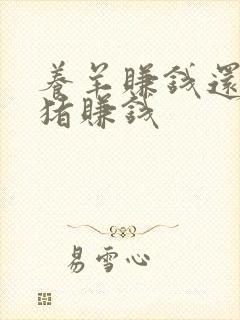 養羊賺錢還
猪賺錢
易雪心